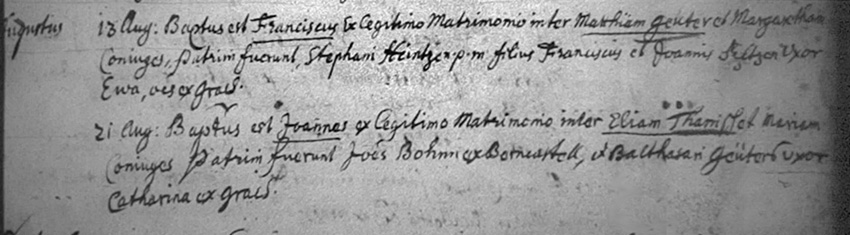 Augustus 13 Aug: Baptus est Franciscus Ex Legitimo Matrimonio inter Matthiam Geüter et Margaretham
Coniuges, Patrim fuerunt, Stephani Heintzen p.m. filius Franciscus et Joannis Uxor
Ewa, oes ex Grae?.
21 Aug: Baptus est Joannes ex Legitimo Matrimonio inter Eliam Thanisch et Mariam
Coniuges Patrim fuerunt Joes Bohnn ex Berncastell, et Balthasari Geüters uxor
Catharina ex Graes.